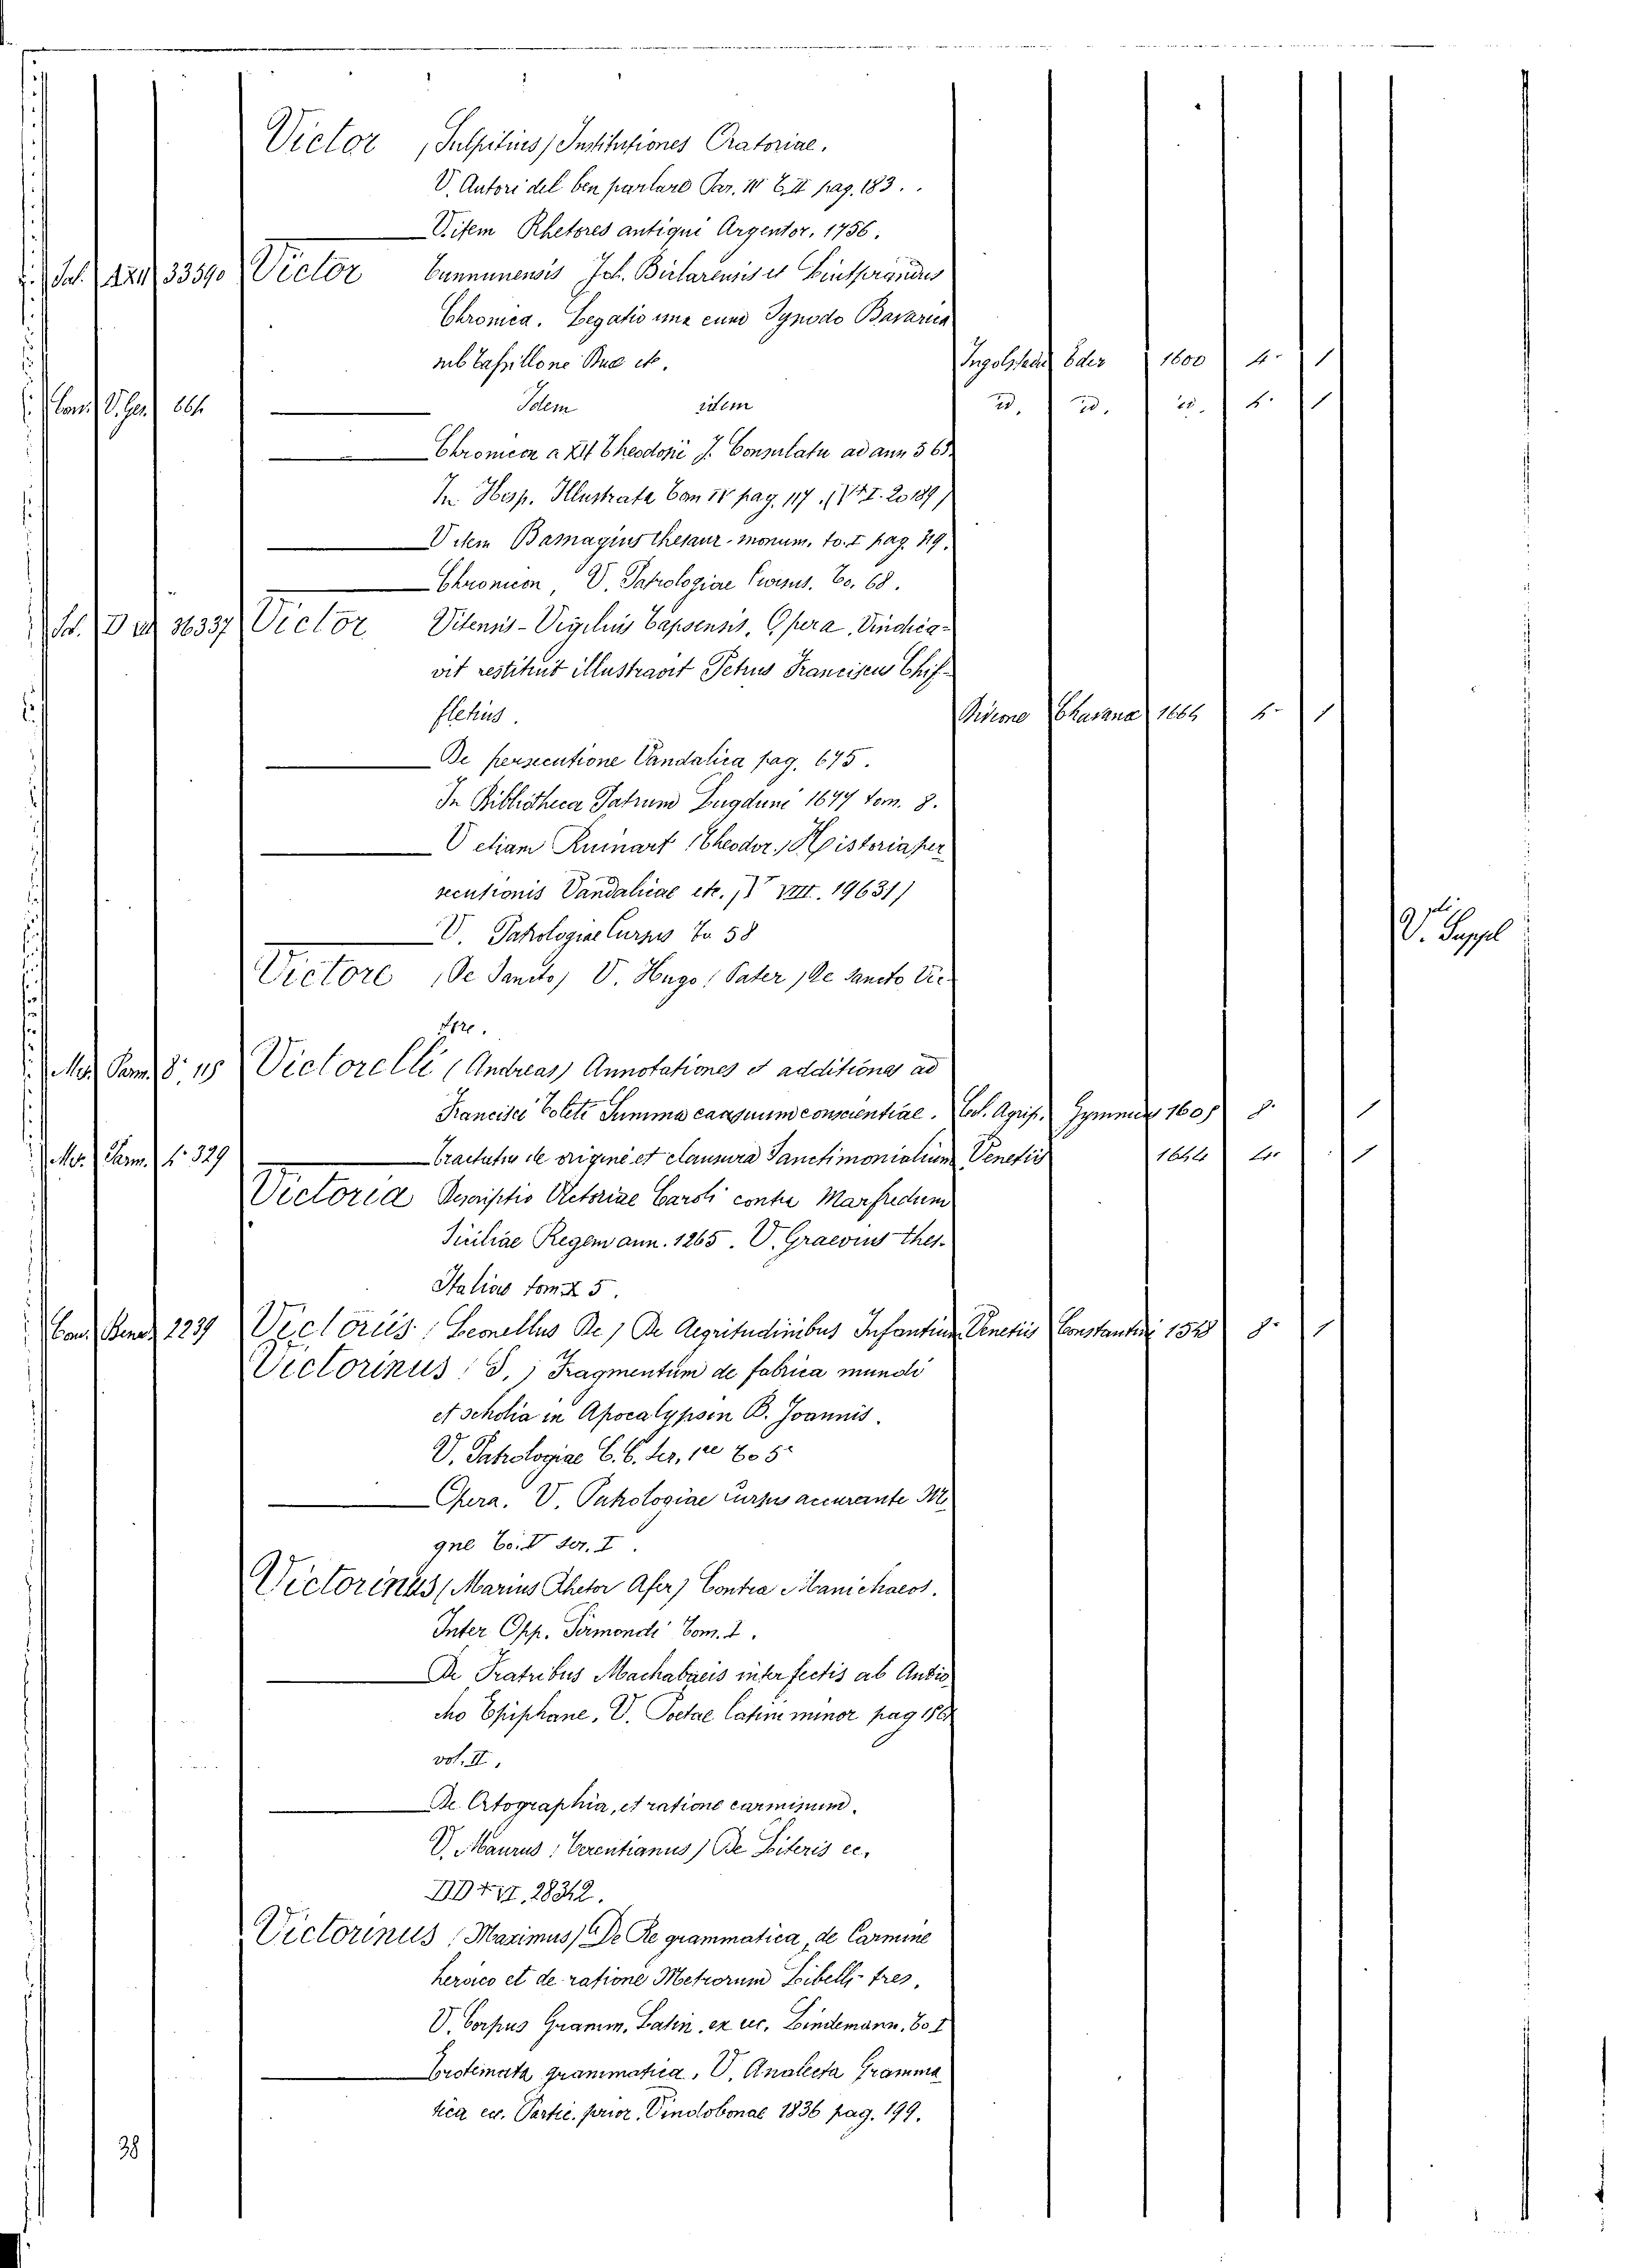 Victor (Sulpitius) Institutiones Oratoriae.
V. Autori del ben parlare Par. IV T. II pag. 183.
V. item Rhetores antiqui Argentor. 1756.
33590 Victor Tunnunensis Joh. Biclarensis et
Chronica. Legatio una cum Synodo Bavarica
sub Tassillone Duc etc. Ingolstadt Eder 1600 4° 1
Can. V. Ger. 664 Idem idem id. id. id. 4° 1
Chronicon a XII Theodosii J. Consulatu ad ann 565.
In Hisp. Illustrata Tom IV pag. 117.
V item Basnagius thesaur. monum. to. I pag.
Chronicon, V. Patrologiae Cursus. To. 68.
36337 Victor Vitensis - Vigilius Tapsensis. Opera, Vindica-
vit restituit illustravit Petrus Franciscus Chif-
fletius. Divione Chavana 1664 4° 1
De persecutione Vandalica pag. 675.
In Bibliotheca Patrum Lugduni 1677 tom. 8.
V etiam Ruinart (Theodor.) Historia per
secutionis Vandalicae etc. VIII. 19631)
V. Patrologiae Cursus To 58
V. Suppl
Victore (De Sancto) V. Hugo (Pater) de Sancto Vic
tore.
Mor Parm. 8. 115 Victorelli (Andreas) Annotationes et additiones ad
Francisci Toleti Summa casuum conscientiae. Col. Agrip. Gymnic 1608 8° 1
Mor. Parm. 4° 329 Tractatus de origine et clausura Sanctimonialium Venetiis 1644 4° 1
Victoria Descriptio Victoriae Caroli contra Manfredum
Siciliae Regem ann. 1265. V. Graevius thes.
Italiae tom 5.
Can. Bened. 2239 Victoriis (Leonellus De) De Aegritudinibus Infantium Venetiis Constantini 1548 8° 1
Victorinus (S.) Fragmentum de fabrica mundi
et scholia in Apocalypsin B. Joannis.
V. Patrologiae C. C. ser. 1re To 5°
Opera. V. Patrologiae cursus accurante Mi
gne To. V ser. I.
Victorinus (Marius Rhetor Afer) Contra Manichaeos.
Inter Opp. Sirmondi Tom. I.
De Fratribus Machabaeis interfectis ab Antio
cho Epiphane. V. Poetae Latini minor pag
vol. II.
De Ortographia, et ratione carminum.
V. Maurus (Terentianus) De Literis ec.
DD + II. 28342.
Victorinus (Maximus) De Re grammatica, de Carmine
heroico et de ratione Metrorum Libelli tres.
V. Corpus Gramm. Latin. ex rec. Lindemann. To I
Erotemata grammatica. V. Analecta Gramma
tica ec. Partic. prior. Vindobonae 1836 pag. 199.
38